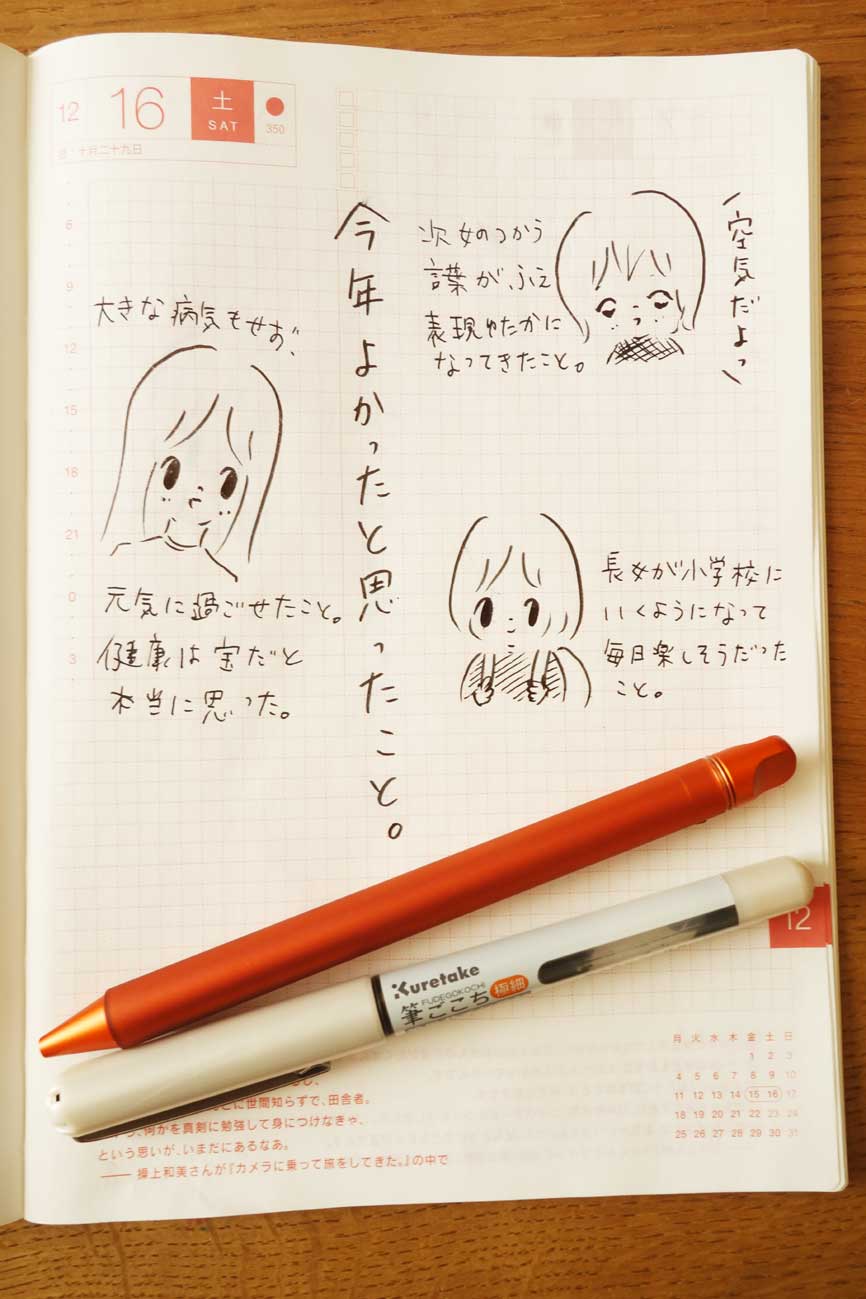 12
16
土
SAT
350
十月二十九日
6
9
12
15
18
21
0
3
今年よかったと思ったこと。
次女のつかう
言葉がふえ
表現ゆたかに
なってきたこと。
空気だよっ
大きな病気もせず、
元気に過ごせたこと。
健康は宝だと
本当に思った。
長女が小学校に
いくようになって
毎日楽しそうだった
こと。
12
Kuretake
FUDEGOKOCHI
筆ごこち 極細
に世間知らずで、田舎者。
何かを真剣に勉強して身につけなきゃ、
という思いが、いまだにあるなあ。
—— 操上和美さんが『カメラに乗って旅をしてきた。』の中で
月 火 水 木 金 土 日
1 2 3
4 5 6 7 8 9 10
11 12 13 14 15 16 17
18 19 20 21 22 23 24
25 26 27 28 29 30 31